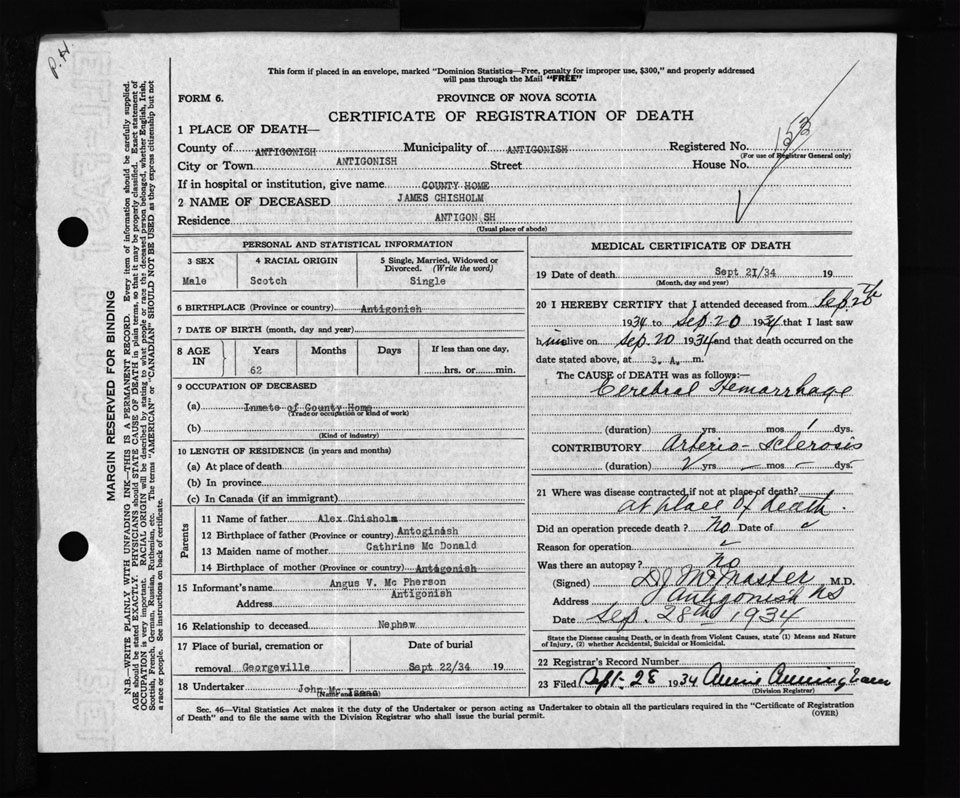 P.H.
This form if placed in an envelope, marked "Dominion Statistics—Free, penalty for improper use, $300," and properly addressed
will pass through the Mail "FREE"
FORM 6.
PROVINCE OF NOVA SCOTIA
CERTIFICATE OF REGISTRATION OF DEATH
153
1 PLACE OF DEATH—
County of ANTIGONISH Municipality of ANTIGONISH Registered No.
(For use of Registrar General only)
City or Town ANTIGONISH Street House No.
If in hospital or institution, give name COUNTY HOME
2 NAME OF DECEASED JAMES CHISHOLM
Residence ANTIGON SH
(Usual place of abode)
PERSONAL AND STATISTICAL INFORMATION
3 SEX 4 RACIAL ORIGIN 5 Single, Married, Widowed or
Divorced. (Write the word)
Male Scotch Single
6 BIRTHPLACE (Province or country) Antigonish
7 DATE OF BIRTH (month, day and year)
8 AGE IN Years Months Days If less than one day,
62 hrs. or min.
9 OCCUPATION OF DECEASED
(a) Inmate of County Home
(Trade or occupation or kind of work)
(b)
(Kind of industry)
10 LENGTH OF RESIDENCE (in years and months)
(a) At place of death
(b) In province
(c) In Canada (if an immigrant)
Parents
11 Name of father Alex Chisholm
12 Birthplace of father (Province or country) Antoginish
13 Maiden name of mother Cathrine Mc Donald
14 Birthplace of mother (Province or country) Antigonish
15 Informant's name Angus V. Mc Pherson
Address Antigonish
16 Relationship to deceased Nephew
17 Place of burial, cremation or Date of burial
removal Georgeville Sept 22/34 19
18 Undertaker John Mc Isaac
MEDICAL CERTIFICATE OF DEATH
19 Date of death Sept 21/34 19
(Month, day and year)
20 I HEREBY CERTIFY that I attended deceased from Sep. 20
1934 to Sep. 20 1934 that I last saw
him alive on Sep. 20 1934 and that death occurred on the
date stated above, at 3. A. m.
The CAUSE of DEATH was as follows:—
Cerebral Hemarrhage
(duration) yrs mos 1 dys.
CONTRIBUTORY Arterio-Sclerosis
(duration) 2 yrs — mos — dys.
21 Where was disease contracted if not at place of death?
at place of death.
Did an operation precede death? No Date of
Reason for operation
Was there an autopsy? No
(Signed) D.J. McMaster M.D.
Address Antigonish NS
Date Sep. 28th 1934
State the Disease causing Death, or in death from Violent Causes, state (1) Means and Nature
of Injury, (2) whether Accidental, Suicidal or Homicidal.
22 Registrar's Record Number
23 Filed Sept. 28 1934 Annie Cunningham
(Division Registrar)
Sec. 46—Vital Statistics Act makes it the duty of the Undertaker or person acting as Undertaker to obtain all the particulars required in the "Certificate of Registration
of Death" and to file the same with the Division Registrar who shall issue the burial permit.
(OVER)
MARGIN RESERVED FOR BINDING
N.B.—WRITE PLAINLY WITH UNFADING INK—THIS IS A PERMANENT RECORD. Every item of information should be carefully supplied.
AGE should be stated EXACTLY. PHYSICIANS should STATE CAUSE OF DEATH in plain terms, so that it may be properly classified. Exact statement of
OCCUPATION is very important. RACIAL ORIGIN will be described by stating to what people or race the deceased person belonged, whether English, Irish,
Scottish, French, German, Russian, Ruthenian, etc. The terms "AMERICAN" or "CANADIAN" SHOULD NOT BE USED as they express citizenship but not
a race or people. See instructions on back of certificate.